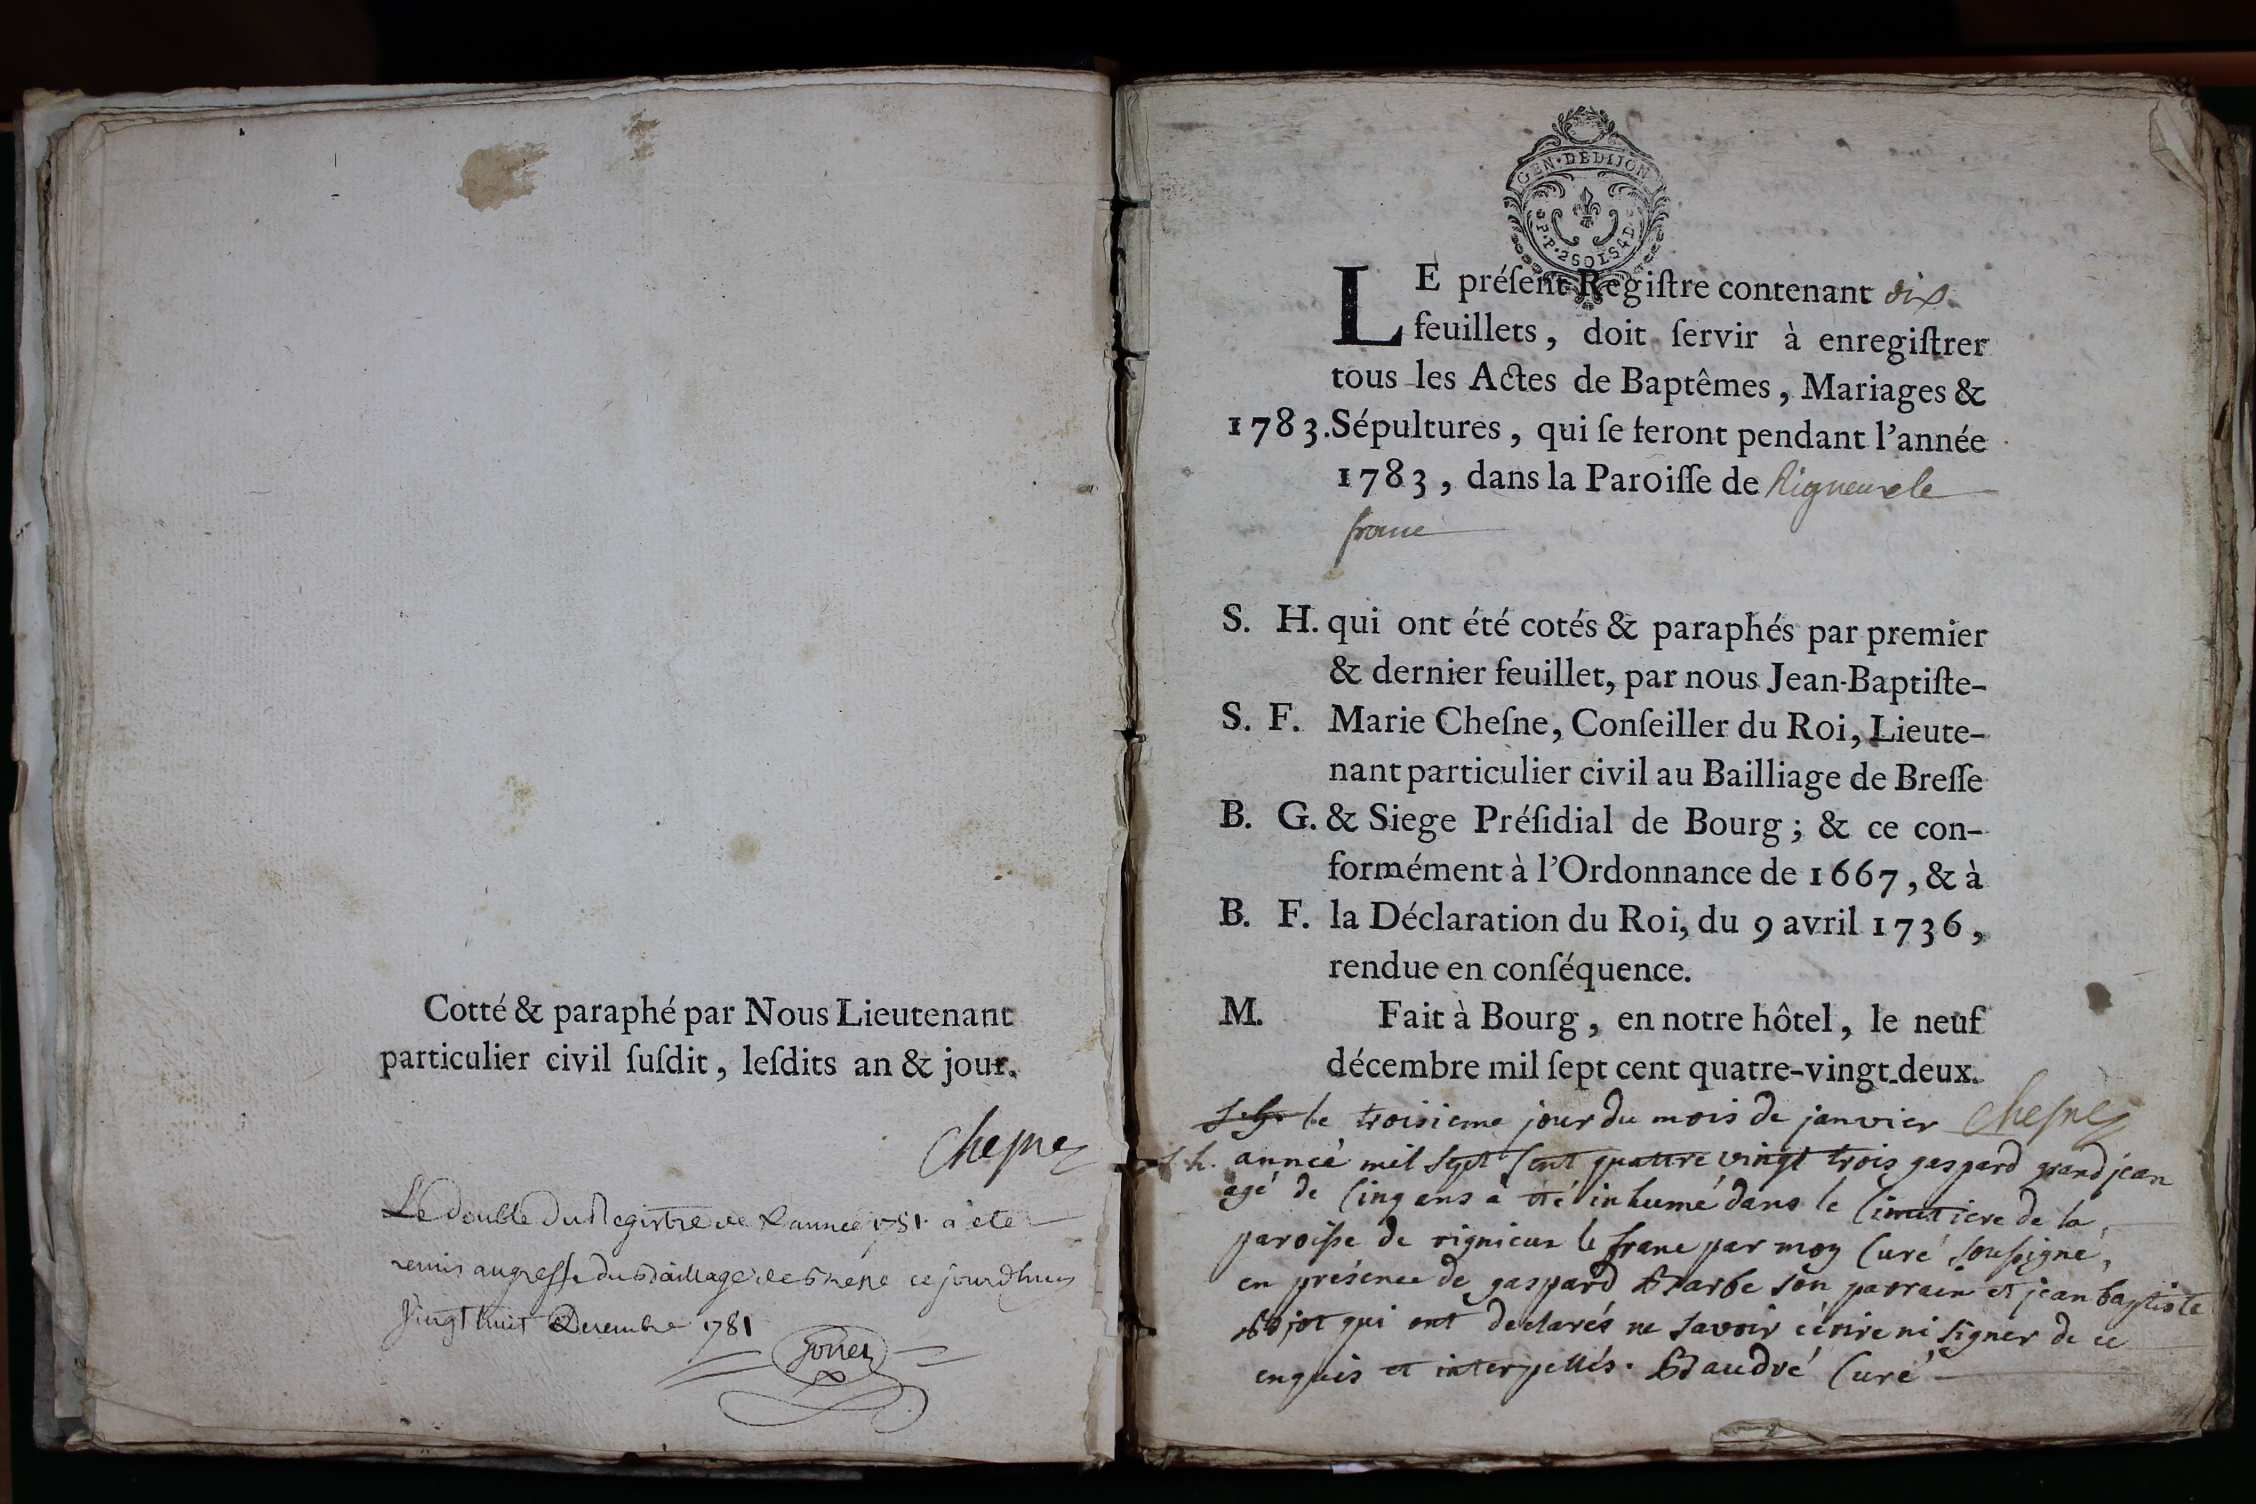 Cotté & paraphé par Nous Lieutenant
particulier civil ſuſdit, leſdits an & jour.
Cheſne
Le double du Registre de l'annee 1781 a ete
remis au greffe du Bailliage de Bresse ce jourdhuy
Vingt huit Decembre 1781
GEN·DEDIJON
P·P·2SOLS4D
LE préſent Regiſtre contenant dix
feuillets, doit ſervir à enregiſtrer
tous les Actes de Baptêmes, Mariages &
1783. Sépultures, qui ſe feront pendant l'année
1783, dans la Paroiſſe de Rigneux le
franc
S. H. qui ont été cotés & paraphés par premier
& dernier feuillet, par nous Jean-Baptiſte-
S. F. Marie Cheſne, Conſeiller du Roi, Lieute-
nant particulier civil au Bailliage de Breſſe
B. G. & Siege Préſidial de Bourg; & ce con-
formément à l'Ordonnance de 1667, & à
B. F. la Déclaration du Roi, du 9 avril 1736,
rendue en conſéquence.
M. Fait à Bourg, en notre hôtel, le neuf
décembre mil ſept cent quatre-vingt-deux.
le troisieme jour du mois de janvier Cheſne
S. h. anneé mil sept Cent quattre vingt trois gaspard grandjean
agé de Cinq ans a été inhumé dans le Cimetiere de la
paroisse de rignieux le franc par moy Curé soussigné,
en présence de gaspard Barbe son parrain et jean baptiste
Bojot qui ont declarés ne savoir écrire ni signer de ce
enquis et interpellés. Baudré Curé